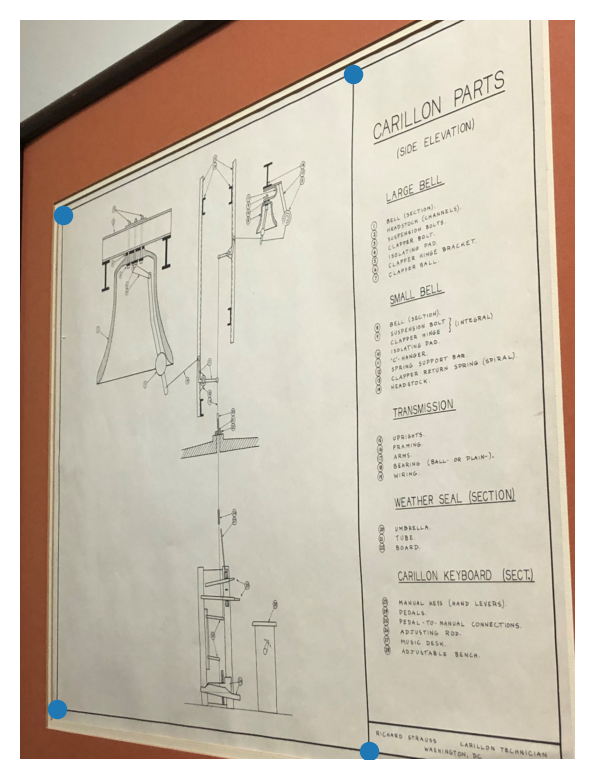 CARILLON PARTS
(SIDE ELEVATION)
LARGE BELL
BELL (SECTION).
HEADSTOCK (CHANNELS).
SUSPENSION BOLTS.
CLAPPER BOLT.
ISOLATING PAD.
CLAPPER HINGE BRACKET.
CLAPPER BALL.
SMALL BELL
BELL (SECTION).
SUSPENSION BOLT } (INTEGRAL)
CLAPPER HINGE
ISOLATING PAD.
'C'-HANGER.
SPRING SUPPORT BAR.
CLAPPER RETURN SPRING (SPIRAL).
HEADSTOCK.
TRANSMISSION
UPRIGHTS.
FRAMING.
ARMS.
BEARING (BALL- OR PLAIN-).
WIRING.
WEATHER SEAL (SECTION)
UMBRELLA.
TUBE.
BOARD.
CARILLON KEYBOARD (SECT.)
MANUAL KEYS (HAND LEVERS).
PEDALS.
PEDAL-TO-MANUAL CONNECTIONS.
ADJUSTING ROD.
MUSIC DESK.
ADJUSTABLE BENCH.
RICHARD STRAUSS CARILLON TECHNICIAN
WASHINGTON, DC